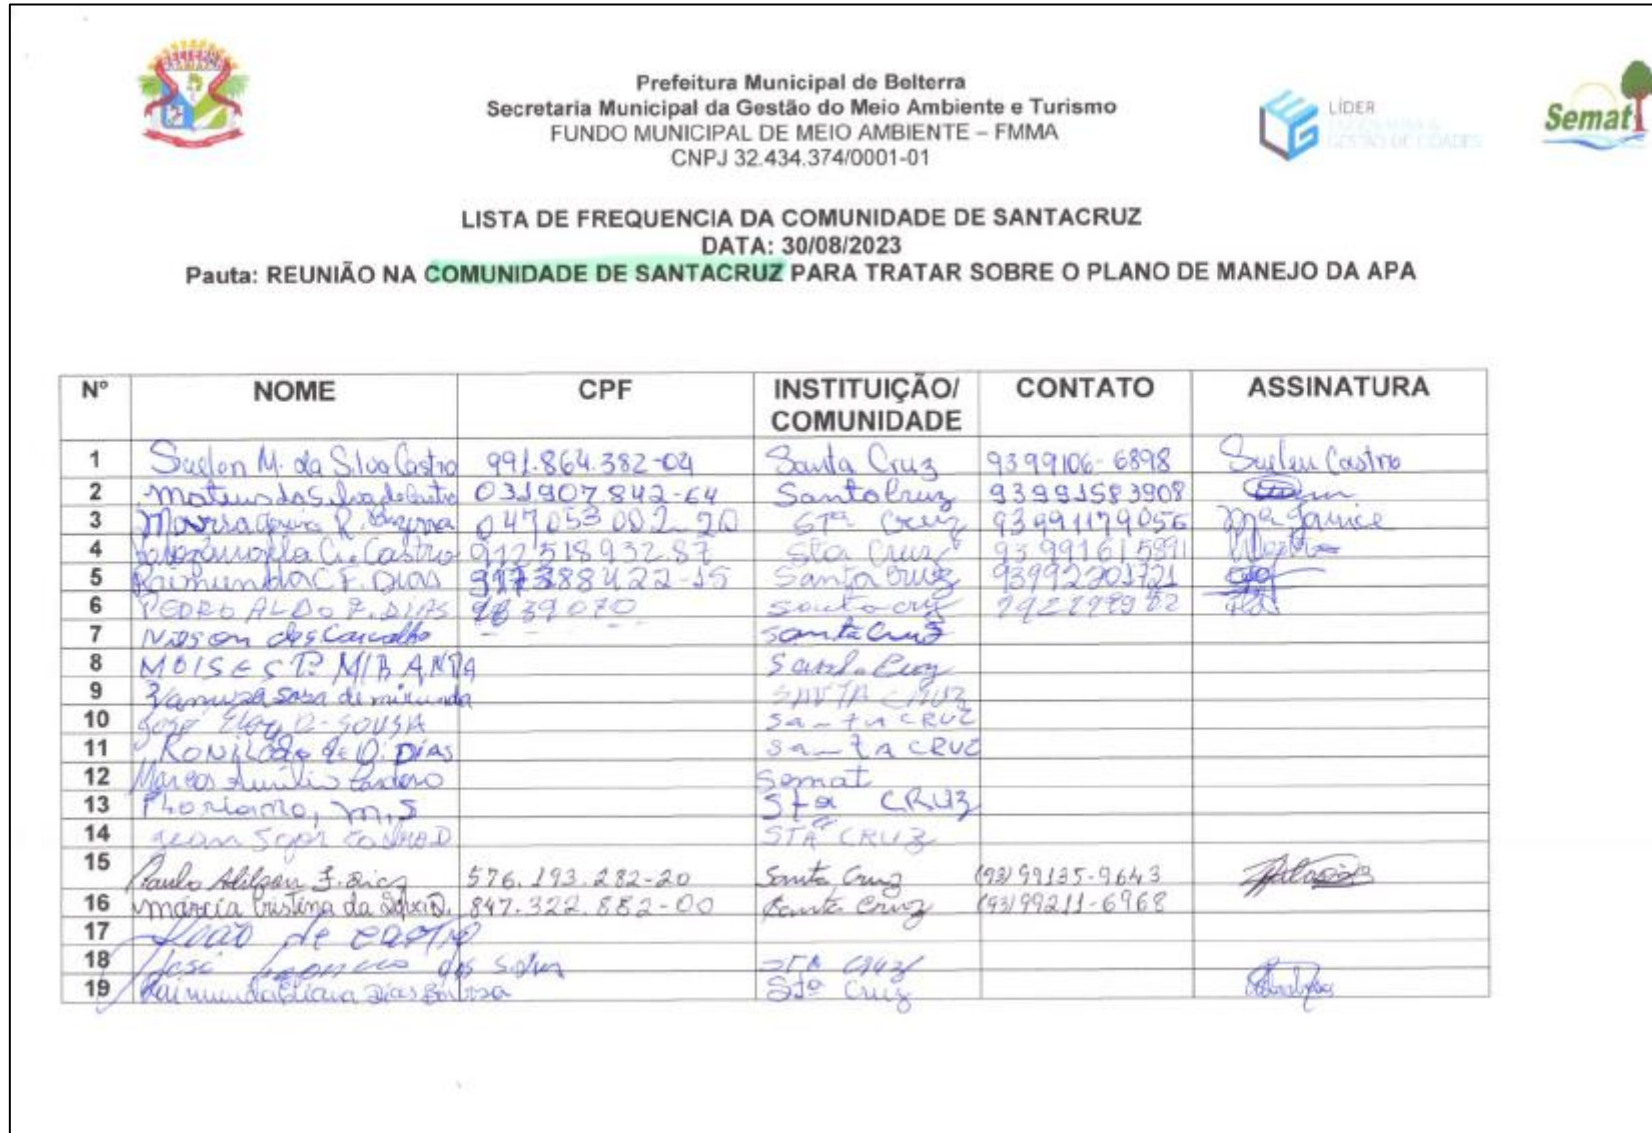 BELTERRA
Prefeitura Municipal de Belterra
Secretaria Municipal da Gestão do Meio Ambiente e Turismo
FUNDO MUNICIPAL DE MEIO AMBIENTE – FMMA
CNPJ 32.434.374/0001-01
LÍDER
GESTÃO DE CIDADES
Semat
LISTA DE FREQUENCIA DA COMUNIDADE DE SANTACRUZ
DATA: 30/08/2023
Pauta: REUNIÃO NA COMUNIDADE DE SANTACRUZ PARA TRATAR SOBRE O PLANO DE MANEJO DA APA
Nº NOME CPF INSTITUIÇÃO/ COMUNIDADE CONTATO ASSINATURA
1 Suelen M. da Silva Castro 991.864.382-04 Santa Cruz 9399106-6898 Suelen Castro
2 Mateus da Silva de Castro 031907842-64 Santa Cruz 93991583908
3 R. 047053002-20 Stª Cruz 93991179056 Mª Janice
4 C. Castro 912518932.87 Sta Cruz 93991615891
5 Raimunda C.F. Dias 917388422-15 Santa Cruz 93992201721
6 PEDRO ALDO F. DIAS 2639070 Santa cruz
7 Nilson Carvalho Santa Cruz
8 MOISES P. MIRANDA Santa Cruz
9 de miranda SANTA CRUZ
10 José SOUSA Santa CRUZ
11 RONILDO de O. DIAS Santa CRUZ
12 Marcos Aurílio Cardoso Semat
13 Floriano, M.S Stª CRUZ
14 Jean Igor STª CRUZ
15 Paulo Alilson F. Dias 576.193.282-20 Santa Cruz (93) 99135-9643
16 Márcia Cristina da Silva D. 847.322.882-00 Santa Cruz (93) 99211-6968
17 João de Castro
18 José dos STA CRUZ
19 Raimunda Dias Barbosa Stª Cruz